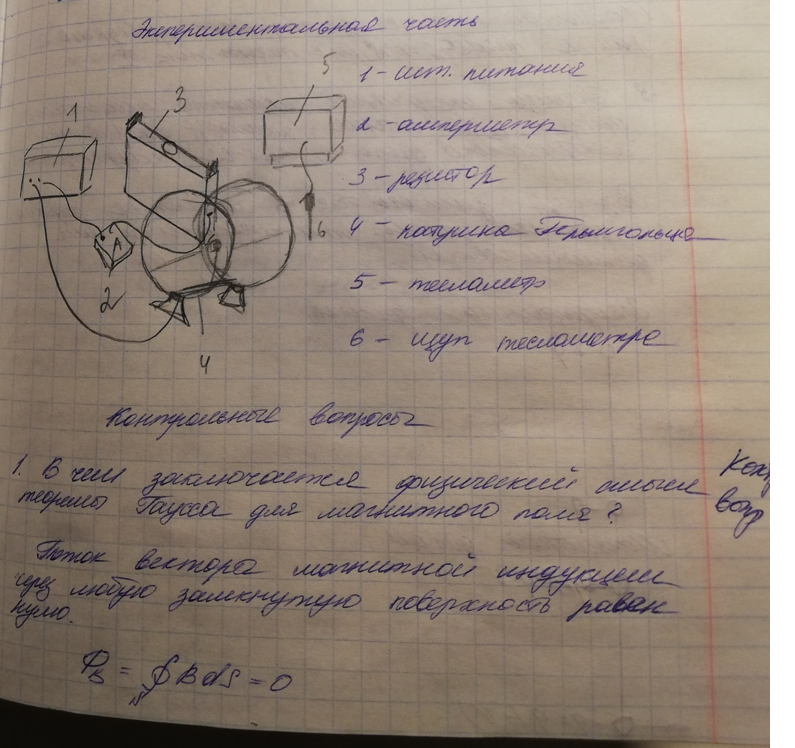 Экспериментальная часть
1 - ист. питания
2 - амперметр
3 - резистор
4 - катушка Гельмгольца
5 - тесламетр
6 - щуп тесламетра
1
3
5
A
2
6
4
Контрольные вопросы
1. В чем заключается физический смысл
теоремы Гаусса для магнитного поля?
Поток вектора магнитной индукции
через любую замкнутую поверхность равен
нулю.
Ф_B = ∮_S B dS = 0